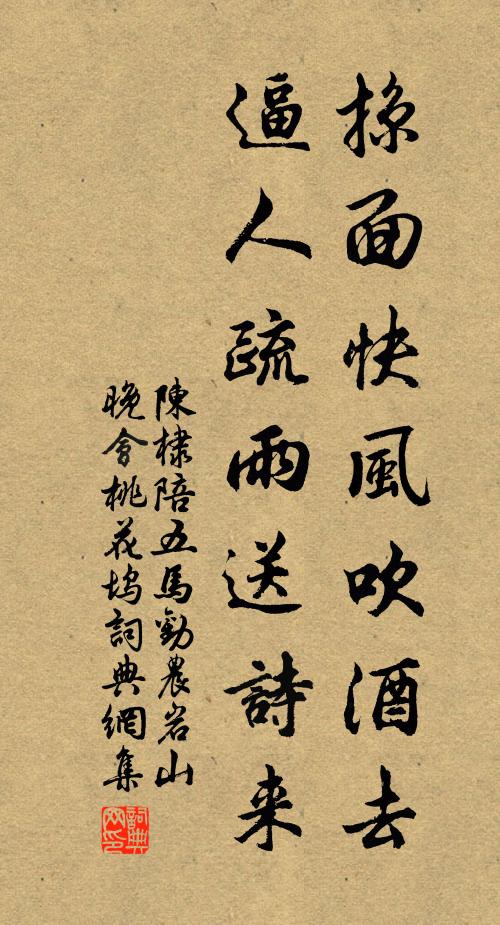 掠面快風吹酒去
逼人疏雨送詩来
陳棣陪五馬勸農岩山
晚會桃花塢詞典網集
詞典网印